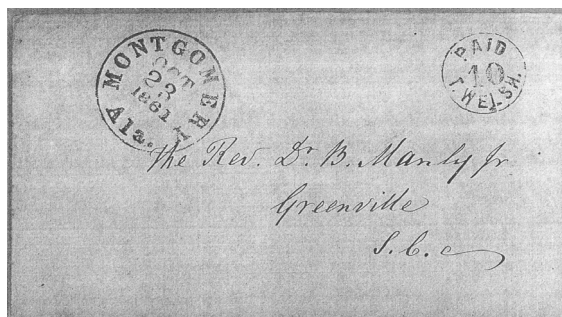 MONTGOMERY
OCT
23
1861
Ala.
PAID
10
T. WELSH.
The Rev. Dr. B. Manly Jr
Greenville
S. C.